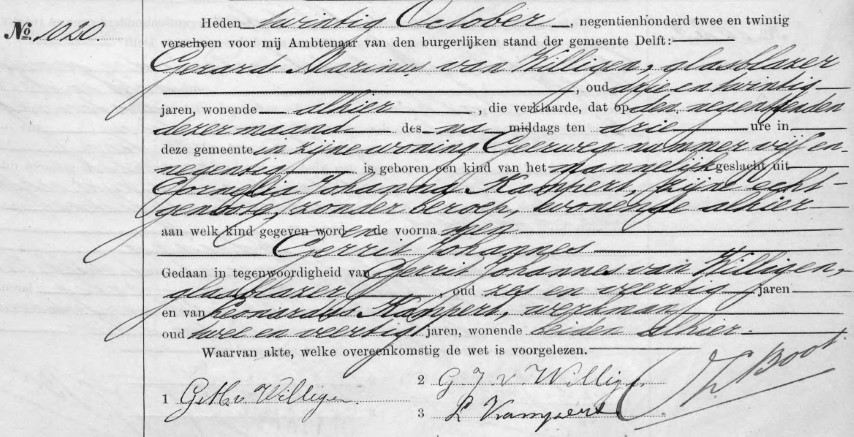 No. 1020.
Heden twintig October, negentienhonderd twee en twintig
verscheen voor mij Ambtenaar van den burgerlijken stand der gemeente Delft:
Gerard Marinus van Willigen, glasblazer
, oud drie en twintig
jaren, wonende alhier, die verklaarde, dat op den negentienden
dezer maand des na middags ten drie ure in
deze gemeente in zijne woning Geerweg nummer vijf en
negentig is geboren een kind van het mannelijk geslacht uit
Cornelia Johanna Kampert, zijne echt-
genoote, zonder beroep, wonende alhier
aan welk kind gegeven worden de voornamen
Gerrit Johannes
Gedaan in tegenwoordigheid van Gerrit Johannes van Willigen,
glasblazer, oud zes en veertig jaren
en van Leonardus Kampert, werkman
oud twee en veertig jaren, wonende beiden alhier.
Waarvan akte, welke overeenkomstig de wet is voorgelezen.
1 G.M. v Willigen.
2 G J v Willige
3 L Kampert
Boot